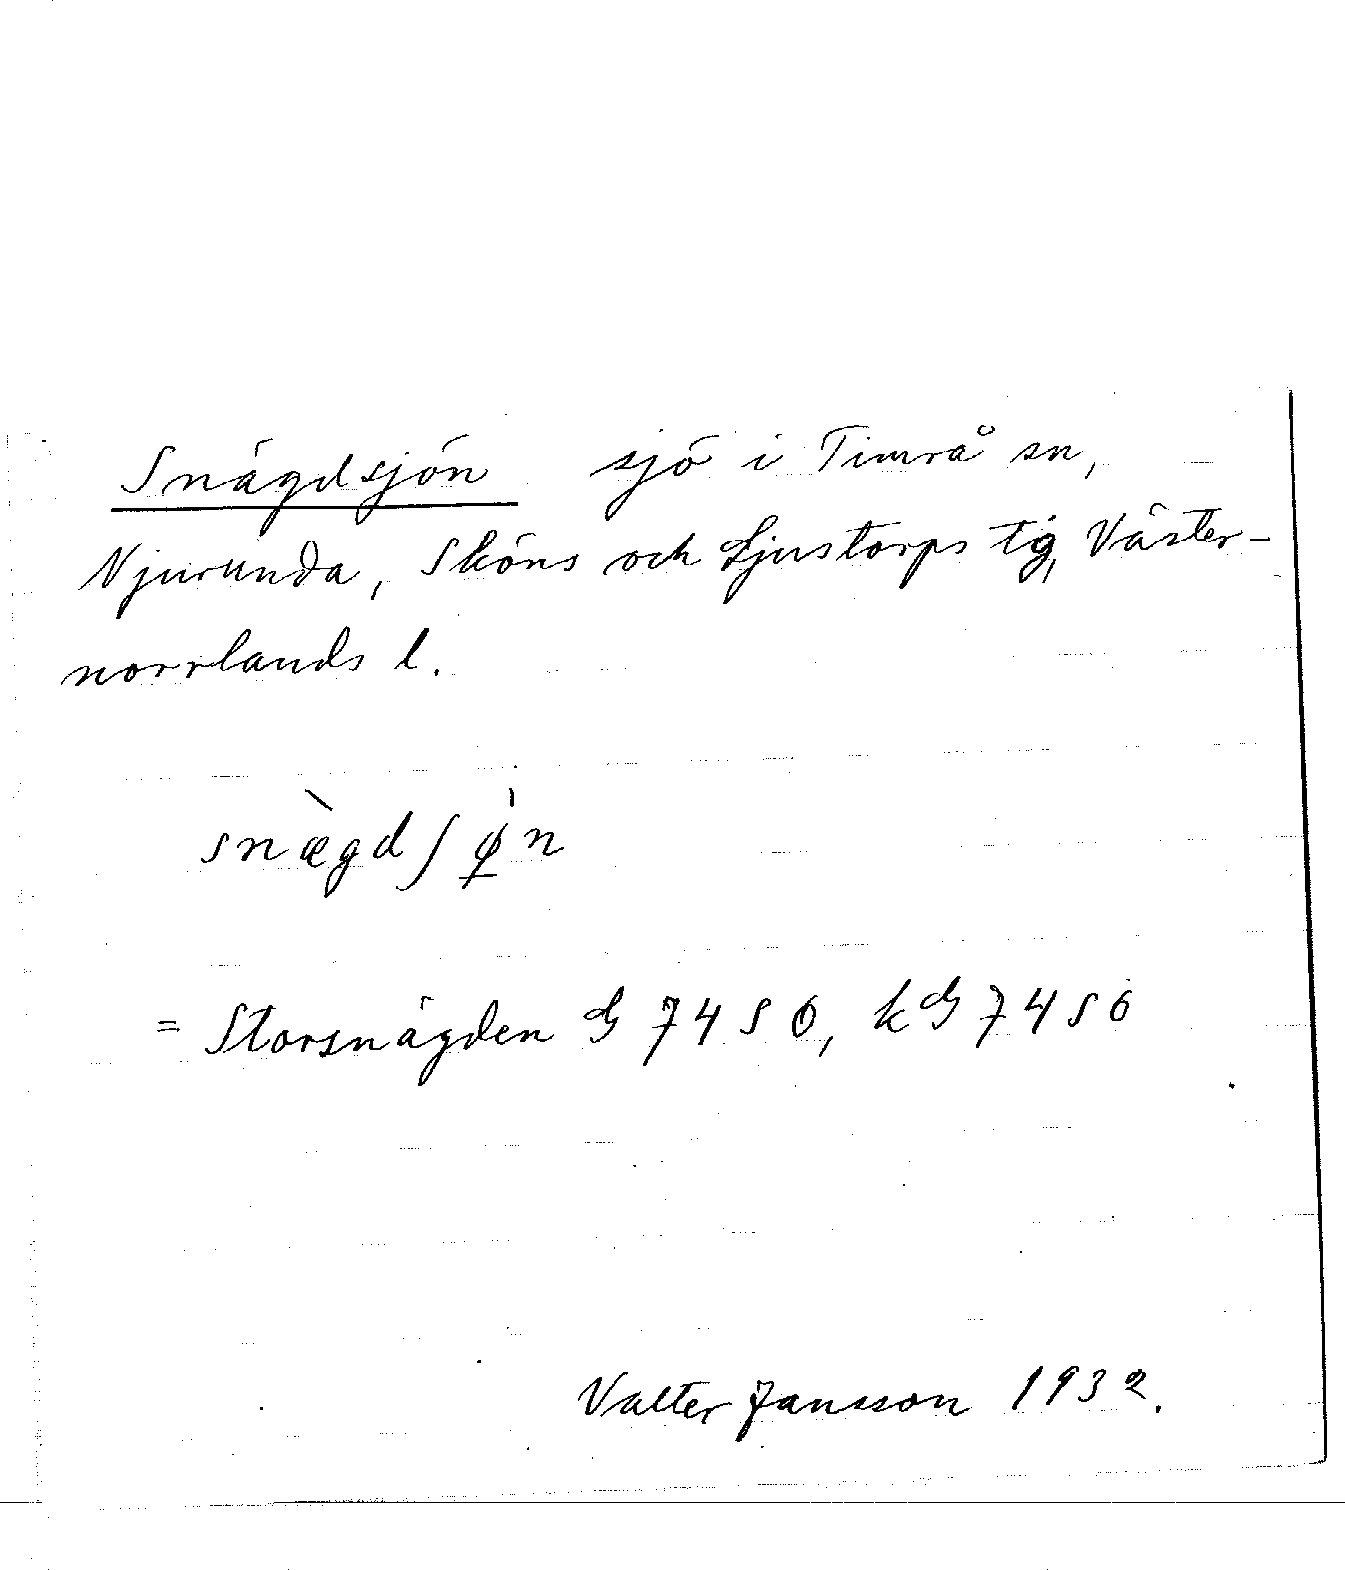 Snägdsjön sjö i Timrå sn,
Njurunda, Sköns och Ljustorps tg, Väster-
norrlands l.
snægdʃøn
= Storsnägden G 7450, kG 7450
Valter Jansson 1932.